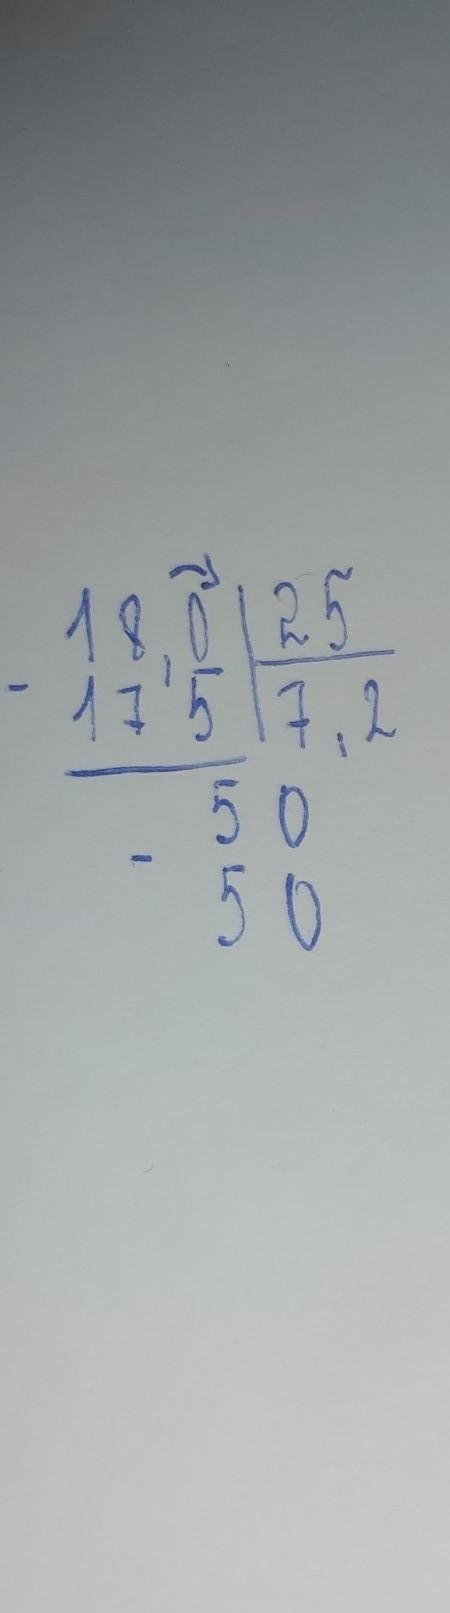 18,0 25
- 17 5 7,2
50
- 50